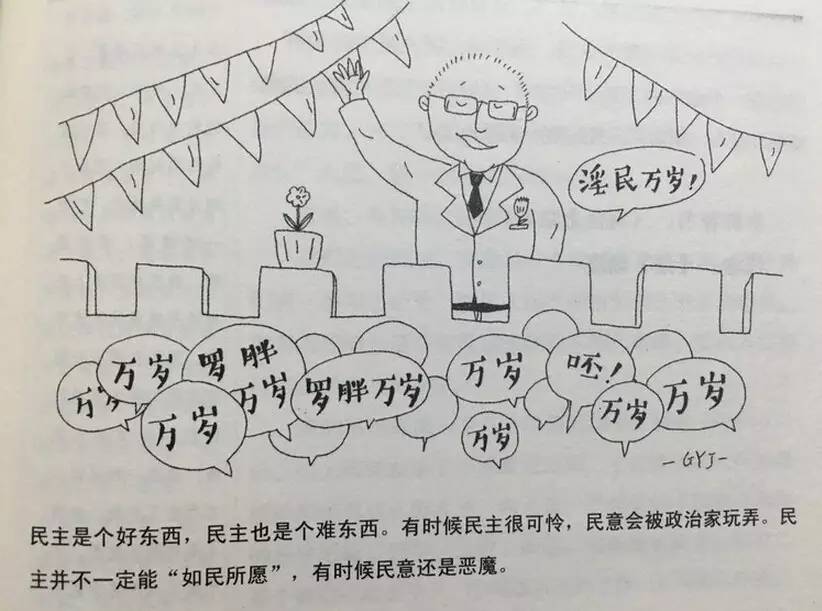 淫民万岁！
万岁
万岁
万岁
罗胖
万岁
罗胖万岁
万岁
万岁
呸！
万岁
万岁
-GYJ-
民主是个好东西，民主也是个难东西。有时候民主很可怜，民意会被政治家玩弄。民
主并不一定能“如民所愿”，有时候民意还是恶魔。